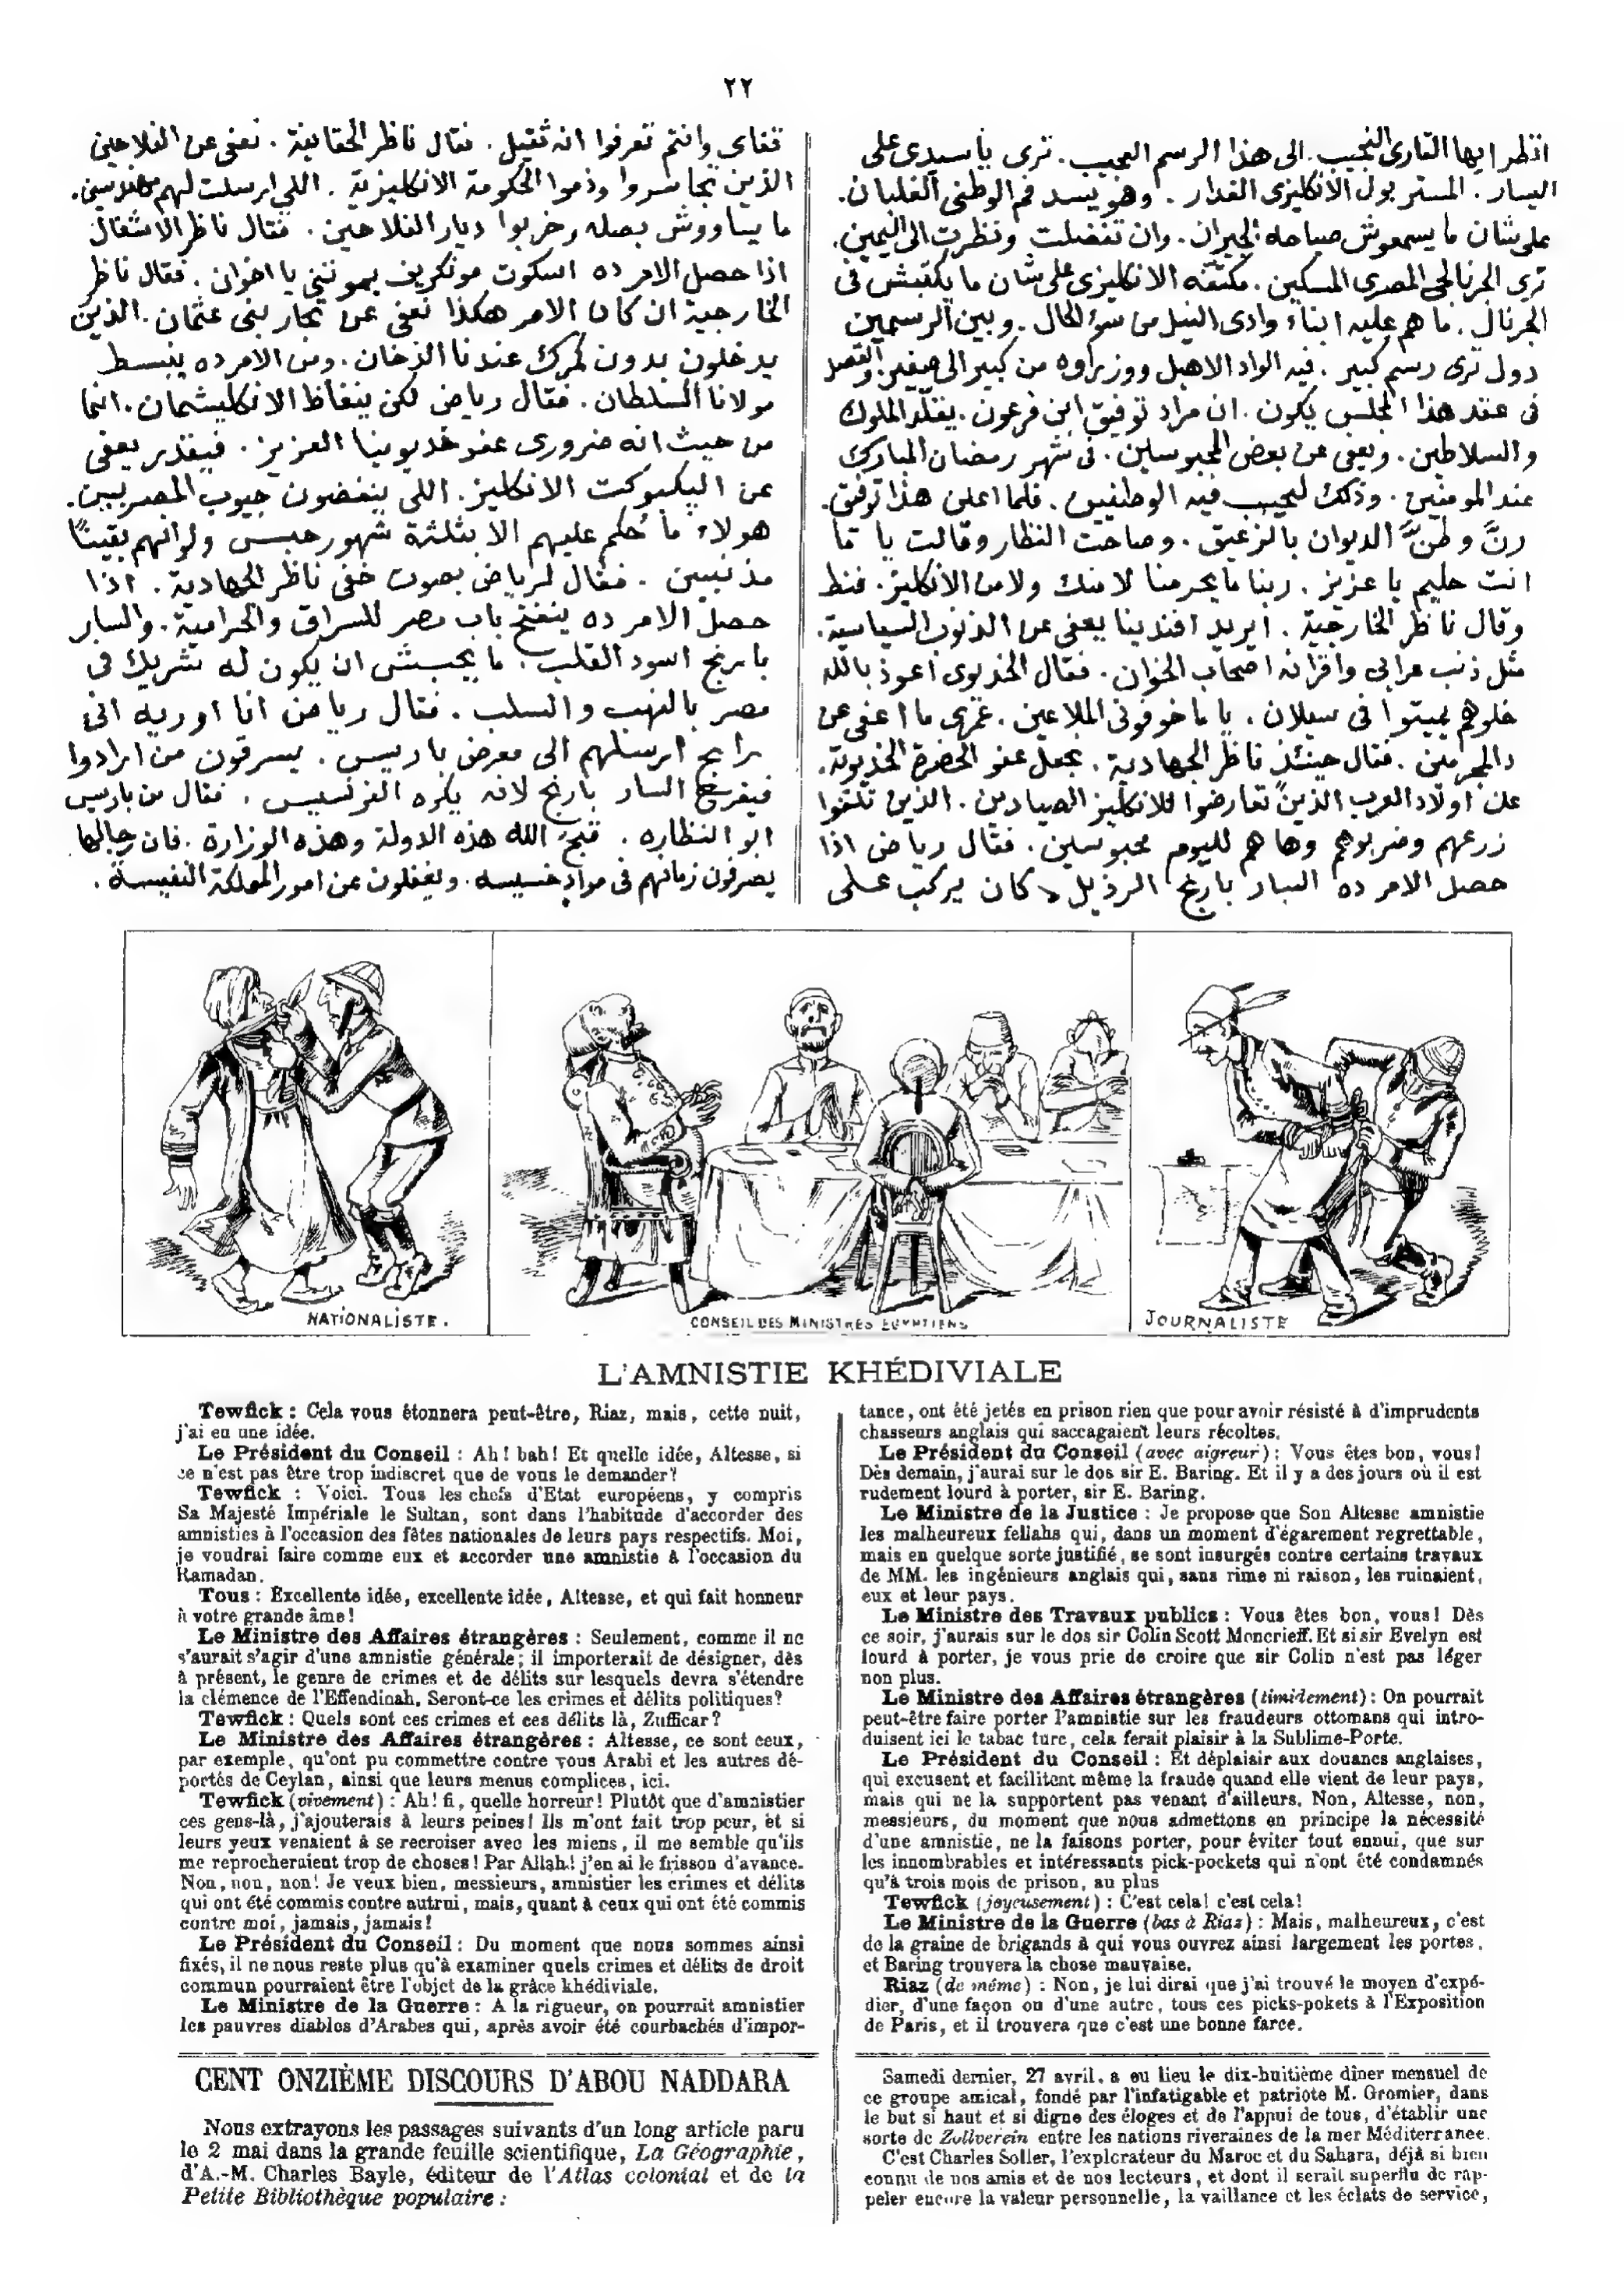 ٢٢
انظر ايها القارئ النجيب. الى هذا الرسم العجيب. ترى يا سيدى على
اليسار. المستر بول الانكليزى الغدار. وهو يسد فم الوطنى الغلبان.
على شان ما يسمعوش صياحه الجيران. وان تفضلت ونظرت الى اليمين.
ترى الجرنالجى المصرى المسكين. مكتفه الانكليزى على شان ما يكتبش فى
الجرنال. ما هم عليه ابناء وادى النيل من سوء الحال. وبين الرسمين
دول ترى رسم كبير. فيه الواد الاهبل ووزراوه من كبير الى صغير. والقصد
فى عقد هذا المجلس يكون. ان مراد توفيق ابن فرعون. يقلد الملوك
والسلاطين. ويعفى عن بعض المحبوسين. فى شهر رمضان المبارك
عند المومنين. وذلك ليحبب فيه الوطنيين. فلما اعلن هذا توفيق.
رنَّ وطنَّ الديوان بالزعيق. وصاحت النظار وقالت يا ما
انت حليم يا عزيز. ربنا ما يحرمنا لا منك ولا من الانكليز. فنط
وقال ناظر الخارجية. ايريد افندينا يعفى عن الذنوب السياسية.
مثل ذنب عرابى واقرانه اصحاب الخوان. فقال الخديوى اعوذ بالله
خلوهم يميتوا فى سيلان. يا ما خوفونى الملاعين. عمرى ما اعفى عن
دالمجرمين. فقال حينئذ ناظر الجهادية. يجعل عفو الحضرة الخديوية.
عن اولاد العرب الذين تعارضوا للانكليز الصيادين. الذين تلفوا
زرعهم وضربوهم وها هم لليوم محبوسين. فقال رياض اذا
حصل الامر ده السار بارنج الرذيل كان يركب على
قفاى وانتم تعرفوا انه ثقيل. فقال ناظر الحقانية. نعفى عن الفلاحين
الذين تجاسروا وذموا الحكومة الانكليزية. اللى ارسلت لهم مهندسين.
ما يساووش بصله وخربوا ديار الفلاحين. فقال ناظر الاشغال
اذا حصل الامر ده اسكوت مونكريف يموتنى يا اخوان. فقال ناظر
الخارجية ان كان الامر هكذا نعفى عن تجار بنى عثمان. الذين
يدخلون بدون كمرك عندنا الدخان. ومن الامر ده ينبسط
مولانا السلطان. فقال رياض لكن ينغاظ الانكليشمان. انما
من حيث انه ضرورى عفو خديوينا العزيز. فيقدر يعفى
عن البكبوكت الانكليز. اللى ينفضون جيوب المصريين.
هولاء ما حُكم عليهم الا بثلثة شهور حبس ولو انهم يقينًا
مذنبين. فقال لرياض بصوت خفى ناظر الجهادية. اذا
حصل الامر ده ينفتح باب مصر للسراق والحرامية. والسار
بارنج اسود القلب. ما يحبش ان يكون له شريك فى
مصر بالنهب والسلب. فقال رياض انا اوريه انى
رايح ارسلهم الى معرض باريس. يسرقون من ارادوا
فيفرح السار بارنج لانه يكره الفرنسيس. فقال من باريس
ابو النظاره. قبح الله هذه الدولة وهذه الوزارة. فان رجالها
يصرفون زمانهم فى مواد خسيسه. ويغفلون عن امور المملكة النفيسة.
NATIONALISTE.
CONSEIL DES MINISTRES EGYPTIENS
JOURNALISTE
L'AMNISTIE KHÉDIVIALE
Tewfick : Cela vous étonnera peut-être, Riaz, mais, cette nuit,
j'ai eu une idée.
Le Président du Conseil : Ah! bah! Et quelle idée, Altesse, si
ce n'est pas être trop indiscret que de vous le demander?
Tewfick : Voici. Tous les chefs d'Etat européens, y compris
Sa Majesté Impériale le Sultan, sont dans l'habitude d'accorder des
amnisties à l'occasion des fêtes nationales de leurs pays respectifs. Moi,
je voudrai faire comme eux et accorder une amnistie à l'occasion du
Ramadan.
Tous : Excellente idée, excellente idée, Altesse, et qui fait honneur
à votre grande âme!
Le Ministre des Affaires étrangères : Seulement, comme il ne
s'aurait s'agir d'une amnistie générale; il importerait de désigner, dès
à présent, le genre de crimes et de délits sur lesquels devra s'étendre
la clémence de l'Effendinah. Seront-ce les crimes et délits politiques?
Tewfick : Quels sont ces crimes et ces délits là, Zufficar?
Le Ministre des Affaires étrangères : Altesse, ce sont ceux,
par exemple, qu'ont pu commettre contre vous Arabi et les autres dé-
portés de Ceylan, ainsi que leurs menus complices, ici.
Tewfick (vivement) : Ah! fi, quelle horreur! Plutôt que d'amnistier
ces gens-là, j'ajouterais à leurs peines! Ils m'ont fait trop peur, et si
leurs yeux venaient à se recroiser avec les miens, il me semble qu'ils
me reprocheraient trop de choses! Par Allah! j'en ai le frisson d'avance.
Non, non, non! Je veux bien, messieurs, amnistier les crimes et délits
qui ont été commis contre autrui, mais, quant à ceux qui ont été commis
contre moi, jamais, jamais!
Le Président du Conseil : Du moment que nous sommes ainsi
fixés, il ne nous reste plus qu'à examiner quels crimes et délits de droit
commun pourraient être l'objet de la grâce khédiviale.
Le Ministre de la Guerre : A la rigueur, on pourrait amnistier
les pauvres diables d'Arabes qui, après avoir été courbachés d'impor-
tance, ont été jetés en prison rien que pour avoir résisté à d'imprudents
chasseurs anglais qui saccagaient leurs récoltes.
Le Président du Conseil (avec aigreur) : Vous êtes bon, vous!
Dès demain, j'aurai sur le dos sir E. Baring. Et il y a des jours où il est
rudement lourd à porter, sir E. Baring.
Le Ministre de la Justice : Je propose que Son Altesse amnistie
les malheureux fellahs qui, dans un moment d'égarement regrettable,
mais en quelque sorte justifié, se sont insurgés contre certains travaux
de MM. les ingénieurs anglais qui, sans rime ni raison, les ruinaient,
eux et leur pays.
Le Ministre des Travaux publics : Vous êtes bon, vous! Dès
ce soir, j'aurais sur le dos sir Colin Scott Moncrieff. Et si sir Evelyn est
lourd à porter, je vous prie de croire que sir Colin n'est pas léger
non plus.
Le Ministre des Affaires étrangères (timidement) : On pourrait
peut-être faire porter l'amnistie sur les fraudeurs ottomans qui intro-
duisent ici le tabac turc, cela ferait plaisir à la Sublime-Porte.
Le Président du Conseil : Et déplaisir aux douanes anglaises,
qui excusent et facilitent même la fraude quand elle vient de leur pays,
mais qui ne la supportent pas venant d'ailleurs. Non, Altesse, non,
messieurs, du moment que nous admettons en principe la nécessité
d'une amnistie, ne la faisons porter, pour éviter tout ennui, que sur
les innombrables et intéressants pick-pockets qui n'ont été condamnés
qu'à trois mois de prison, au plus
Tewfick (joyeusement) : C'est cela! c'est cela!
Le Ministre de la Guerre (bas à Riaz) : Mais, malheureux, c'est
de la graine de brigands à qui vous ouvrez ainsi largement les portes,
et Baring trouvera la chose mauvaise.
Riaz (de même) : Non, je lui dirai que j'ai trouvé le moyen d'expé-
dier, d'une façon ou d'une autre, tous ces picks-pokets à l'Exposition
de Paris, et il trouvera que c'est une bonne farce.
CENT ONZIÈME DISCOURS D'ABOU NADDARA
Nous extrayons les passages suivants d'un long article paru
le 2 mai dans la grande feuille scientifique, La Géographie,
d'A.-M. Charles Bayle, éditeur de l'Atlas colonial et de la
Petite Bibliothèque populaire :
Samedi dernier, 27 avril, a eu lieu le dix-huitième dîner mensuel de
ce groupe amical, fondé par l'infatigable et patriote M. Gromier, dans
le but si haut et si digne des éloges et de l'appui de tous, d'établir une
sorte de Zollverein entre les nations riveraines de la mer Méditerranee.
C'est Charles Soller, l'explorateur du Maroc et du Sahara, déjà si bien
connu de nos amis et de nos lecteurs, et dont il serait superflu de rap-
peler encore la valeur personnelle, la vaillance et les éclats de service,